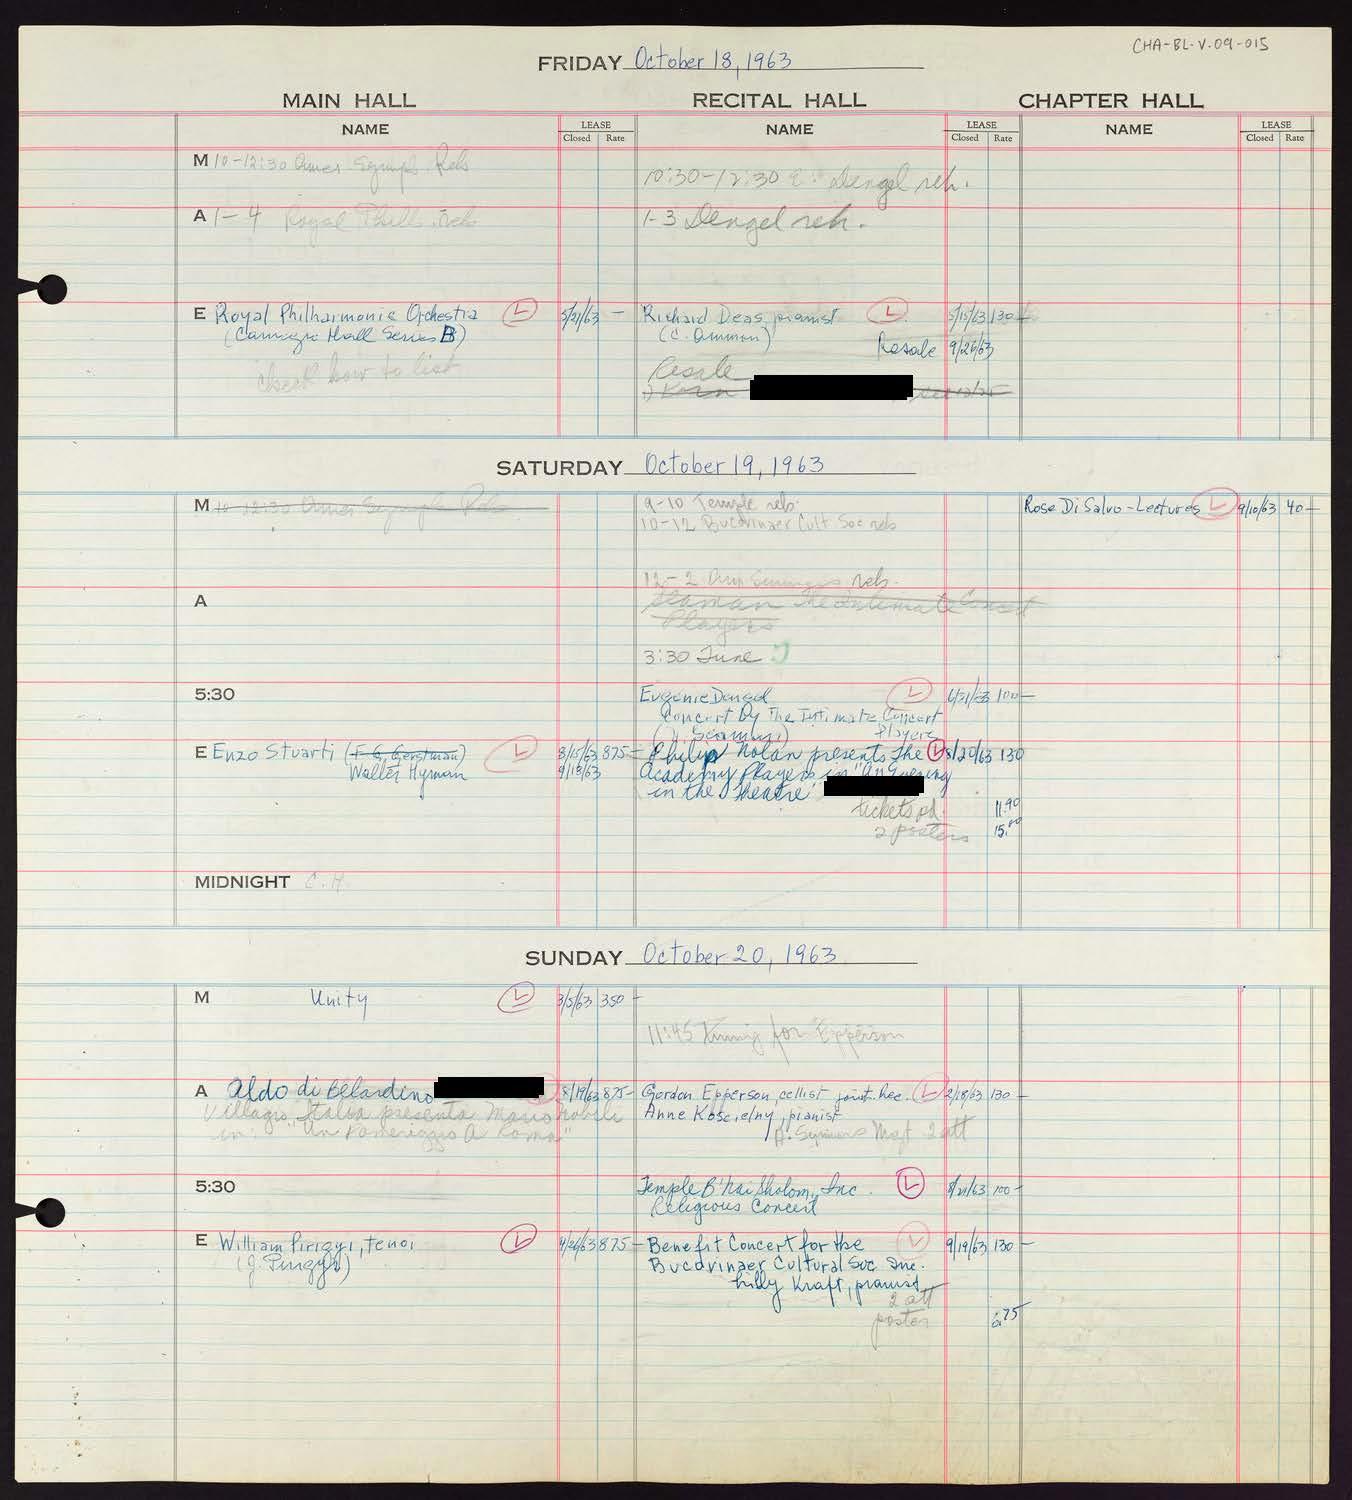 CHA-BL-V.09-015
FRIDAY October 18, 1963
MAIN HALL RECITAL HALL CHAPTER HALL
NAME LEASE Closed Rate NAME LEASE Closed Rate NAME LEASE Closed Rate
M 10-12:30 Amer. Symph. Reh
10:30-12:30 E. Dengel reh.
A 1-4 Royal Phill. reh
1-3 Dengel reh.
E Royal Philharmonic Orchestra L 5/21/63 -
(Carnegie Hall Series B)
check how to list
Richard Deas, pianist L 5/15/63 130-
(C. Ammon)
Resale 9/26/63
Resale
SATURDAY October 19, 1963
M 10-12:30 Amer Symph Reh
9-10 Temple reh.
10-12 Bucovinaer Cult Soc reh
Rose Di Salvo-Lectures L 9/10/63 40-
12-2 reh.
A
Seaman The Intimate Concert
Players
3:30 Tune
5:30
Eugenie Dengel L 100-
Concert By The Intimate Concert
Players
E Enzo Stuarti (F. G. Gerstman) L 8/15/63 875-
Walter Hyman 9/18/63
Philip Nolan presents The L 8/20/63 130
Academy Players in "An Evening
in the Theatre"
tickets pd. 11.90
2 posters 15.00
MIDNIGHT C.H.
SUNDAY October 20, 1963
M Unity L 3/5/63 350-
11:45 Tuning for Epperson
A Aldo di Belardino 8/19/63 875-
Villagio Italia presenta Mario
in: "Un Pomeriggio A Roma"
Gordon Epperson, cellist joint. Rec. L 2/18/63 130-
Anne Koscielny, pianist
Mgt 2 att
5:30
Temple B'nai Sholom, Inc. L 8/21/63 100-
Religious Concert
E William Pirigyi, tenor L 4/26/63 875-
(J. Pirigyi)
Benefit Concert for the L 9/19/63 130-
Bucovinaer Cultural Soc Inc.
Lilly Kraft, pianist
2 att
poster 6.75